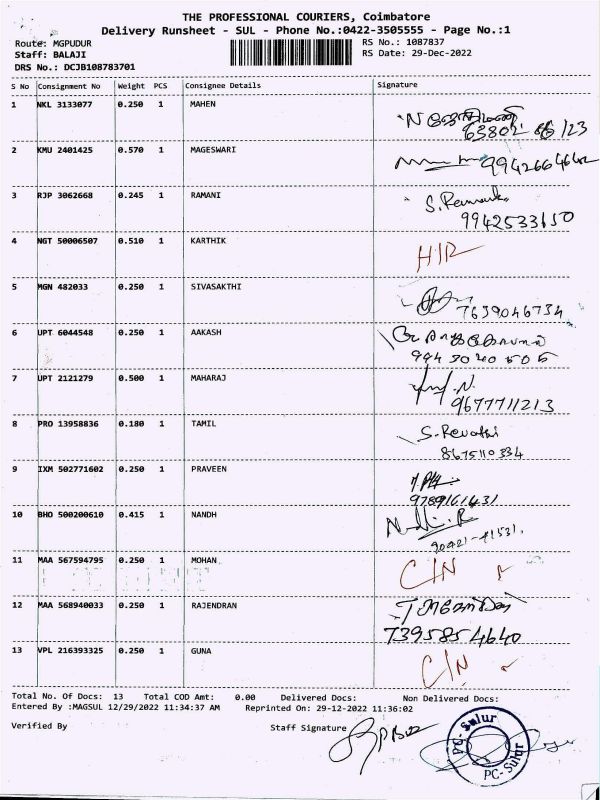 THE PROFESSIONAL COURIERS, Coimbatore
Delivery Runsheet - SUL - Phone No.:0422-3505555 - Page No.:1
Route: MGPUDUR
RS No.: 1087837
Staff: BALAJI
RS Date: 29-Dec-2022
DRS No.: DCJB108783701
S No Consignment No Weight PCS Consignee Details Signature
1 NKL 3133077 0.250 1 MAHEN
2 KMU 2401425 0.570 1 MAGESWARI
9942664642
3 RJP 3062668 0.245 1 RAMANI
9942533150
4 NGT 50006507 0.510 1 KARTHIK
5 MGN 482033 0.250 1 SIVASAKTHI
7639046734
6 UPT 6044548 0.250 1 AAKASH
7 UPT 2121279 0.500 1 MAHARAJ
9677711213
8 PRO 13958836 0.180 1 TAMIL
S. Revathi
8675110334
9 IXM 502771602 0.250 1 PRAVEEN
9789161431
10 BHO 500200610 0.415 1 NANDH
90421-41531.
11 MAA 567594795 0.250 1 MOHAN
C/N
12 MAA 568940033 0.250 1 RAJENDRAN
7395854640
13 VPL 216393325 0.250 1 GUNA
C/N
Total No. Of Docs: 13 Total COD Amt: 0.00 Delivered Docs: Non Delivered Docs:
Entered By :MAGSUL 12/29/2022 11:34:37 AM Reprinted On: 29-12-2022 11:36:02
Verified By Staff Signature
PC-Sulur
PC-Sulur